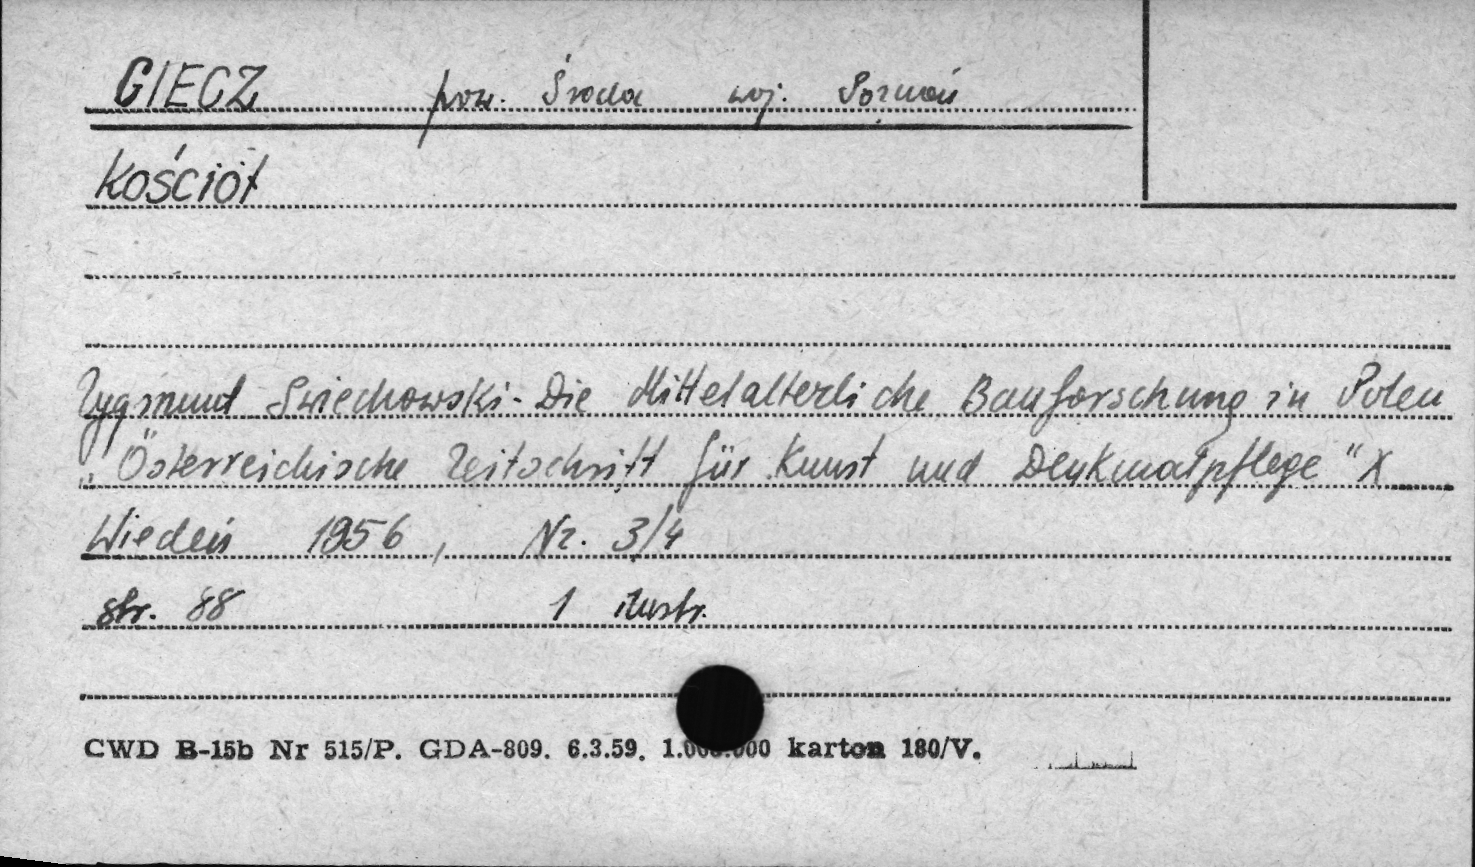 GIECZ pow. Środa woj. Poznań
Kościół
Zygmunt Swiechowski - Die Mittelalterliche Bauforschung in Polen
„Österreichische Zeitschrift für Kunst und Denkmalpflege" X
Wiedeń 1956, Nr. 3/4
str. 88 1 ilustr.
CWD B-15b Nr 515/P. GDA-809. 6.3.59. 1.000.000 karton 180/V.